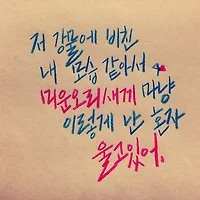 저 강물에 비친
내 모습 같아서
미운오리새끼 마냥
이렇게 난 혼자
울고있어.